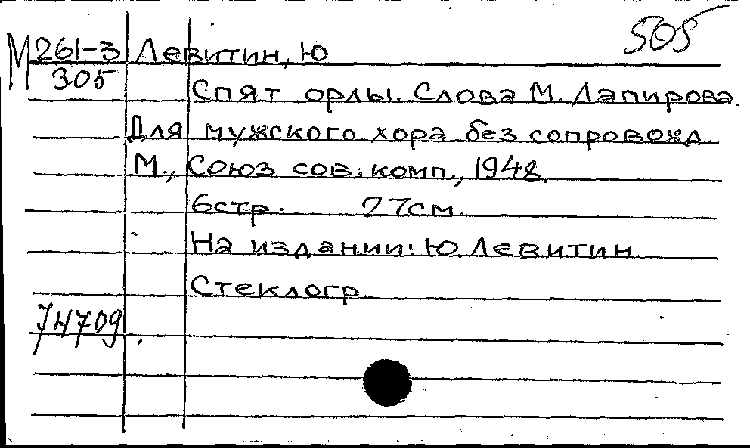 505
М 261-3 Левитин, Ю
305
Спят орлы. Слова М. Лапирова.
Для мужского хора без сопровожд.
М., Союз сов. комп., 1948.
6стр. 27см.
На издании: Ю. Левитин
Стеклогр